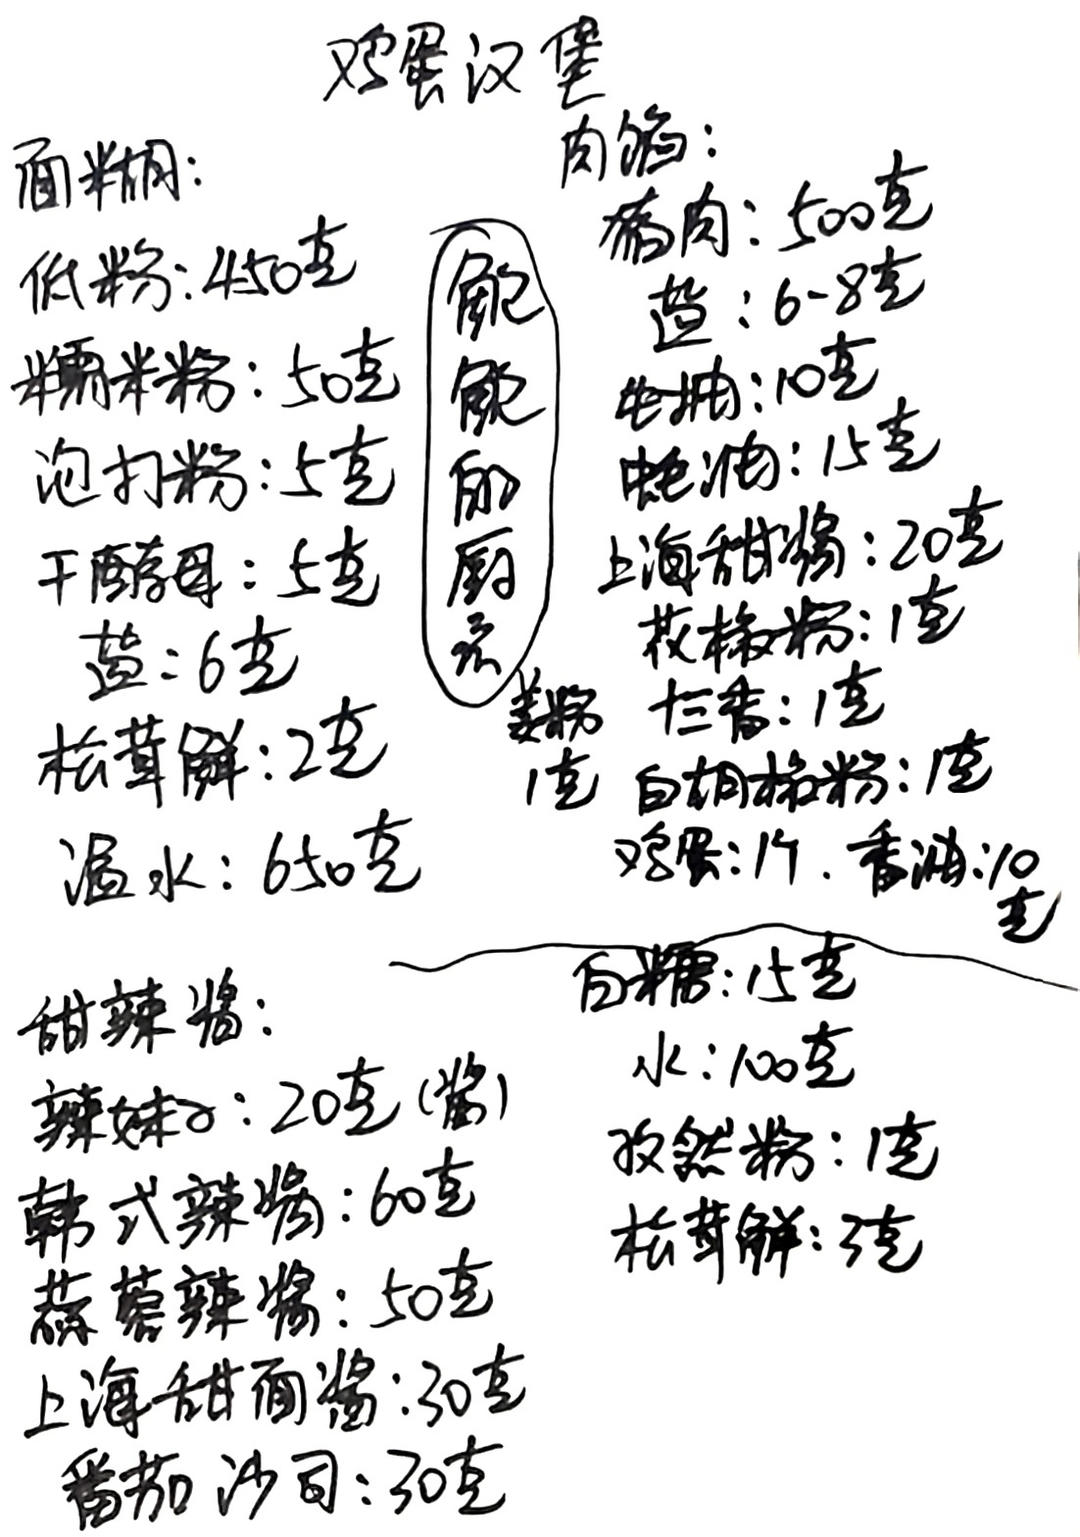 鸡蛋汉堡
面糊:
低粉:450克
糯米粉:50克
泡打粉:5克
干酵母:5克
盐:6克
松茸鲜:2克
温水:650克
肉馅:
猪肉:500克
盐:6-8克
生抽:10克
蚝油:15克
上海甜酱:20克
花椒粉:1克
十三香:1克
姜粉
1克
白胡椒粉:1克
鸡蛋:1个.香油:10
克
甜辣酱:
辣妹子:20克(酱)
韩式辣酱:60克
蒜蓉辣酱:50克
上海甜面酱:30克
番茄沙司:30克
白糖:15克
水:100克
孜然粉:1克
松茸鲜:3克
的
厨